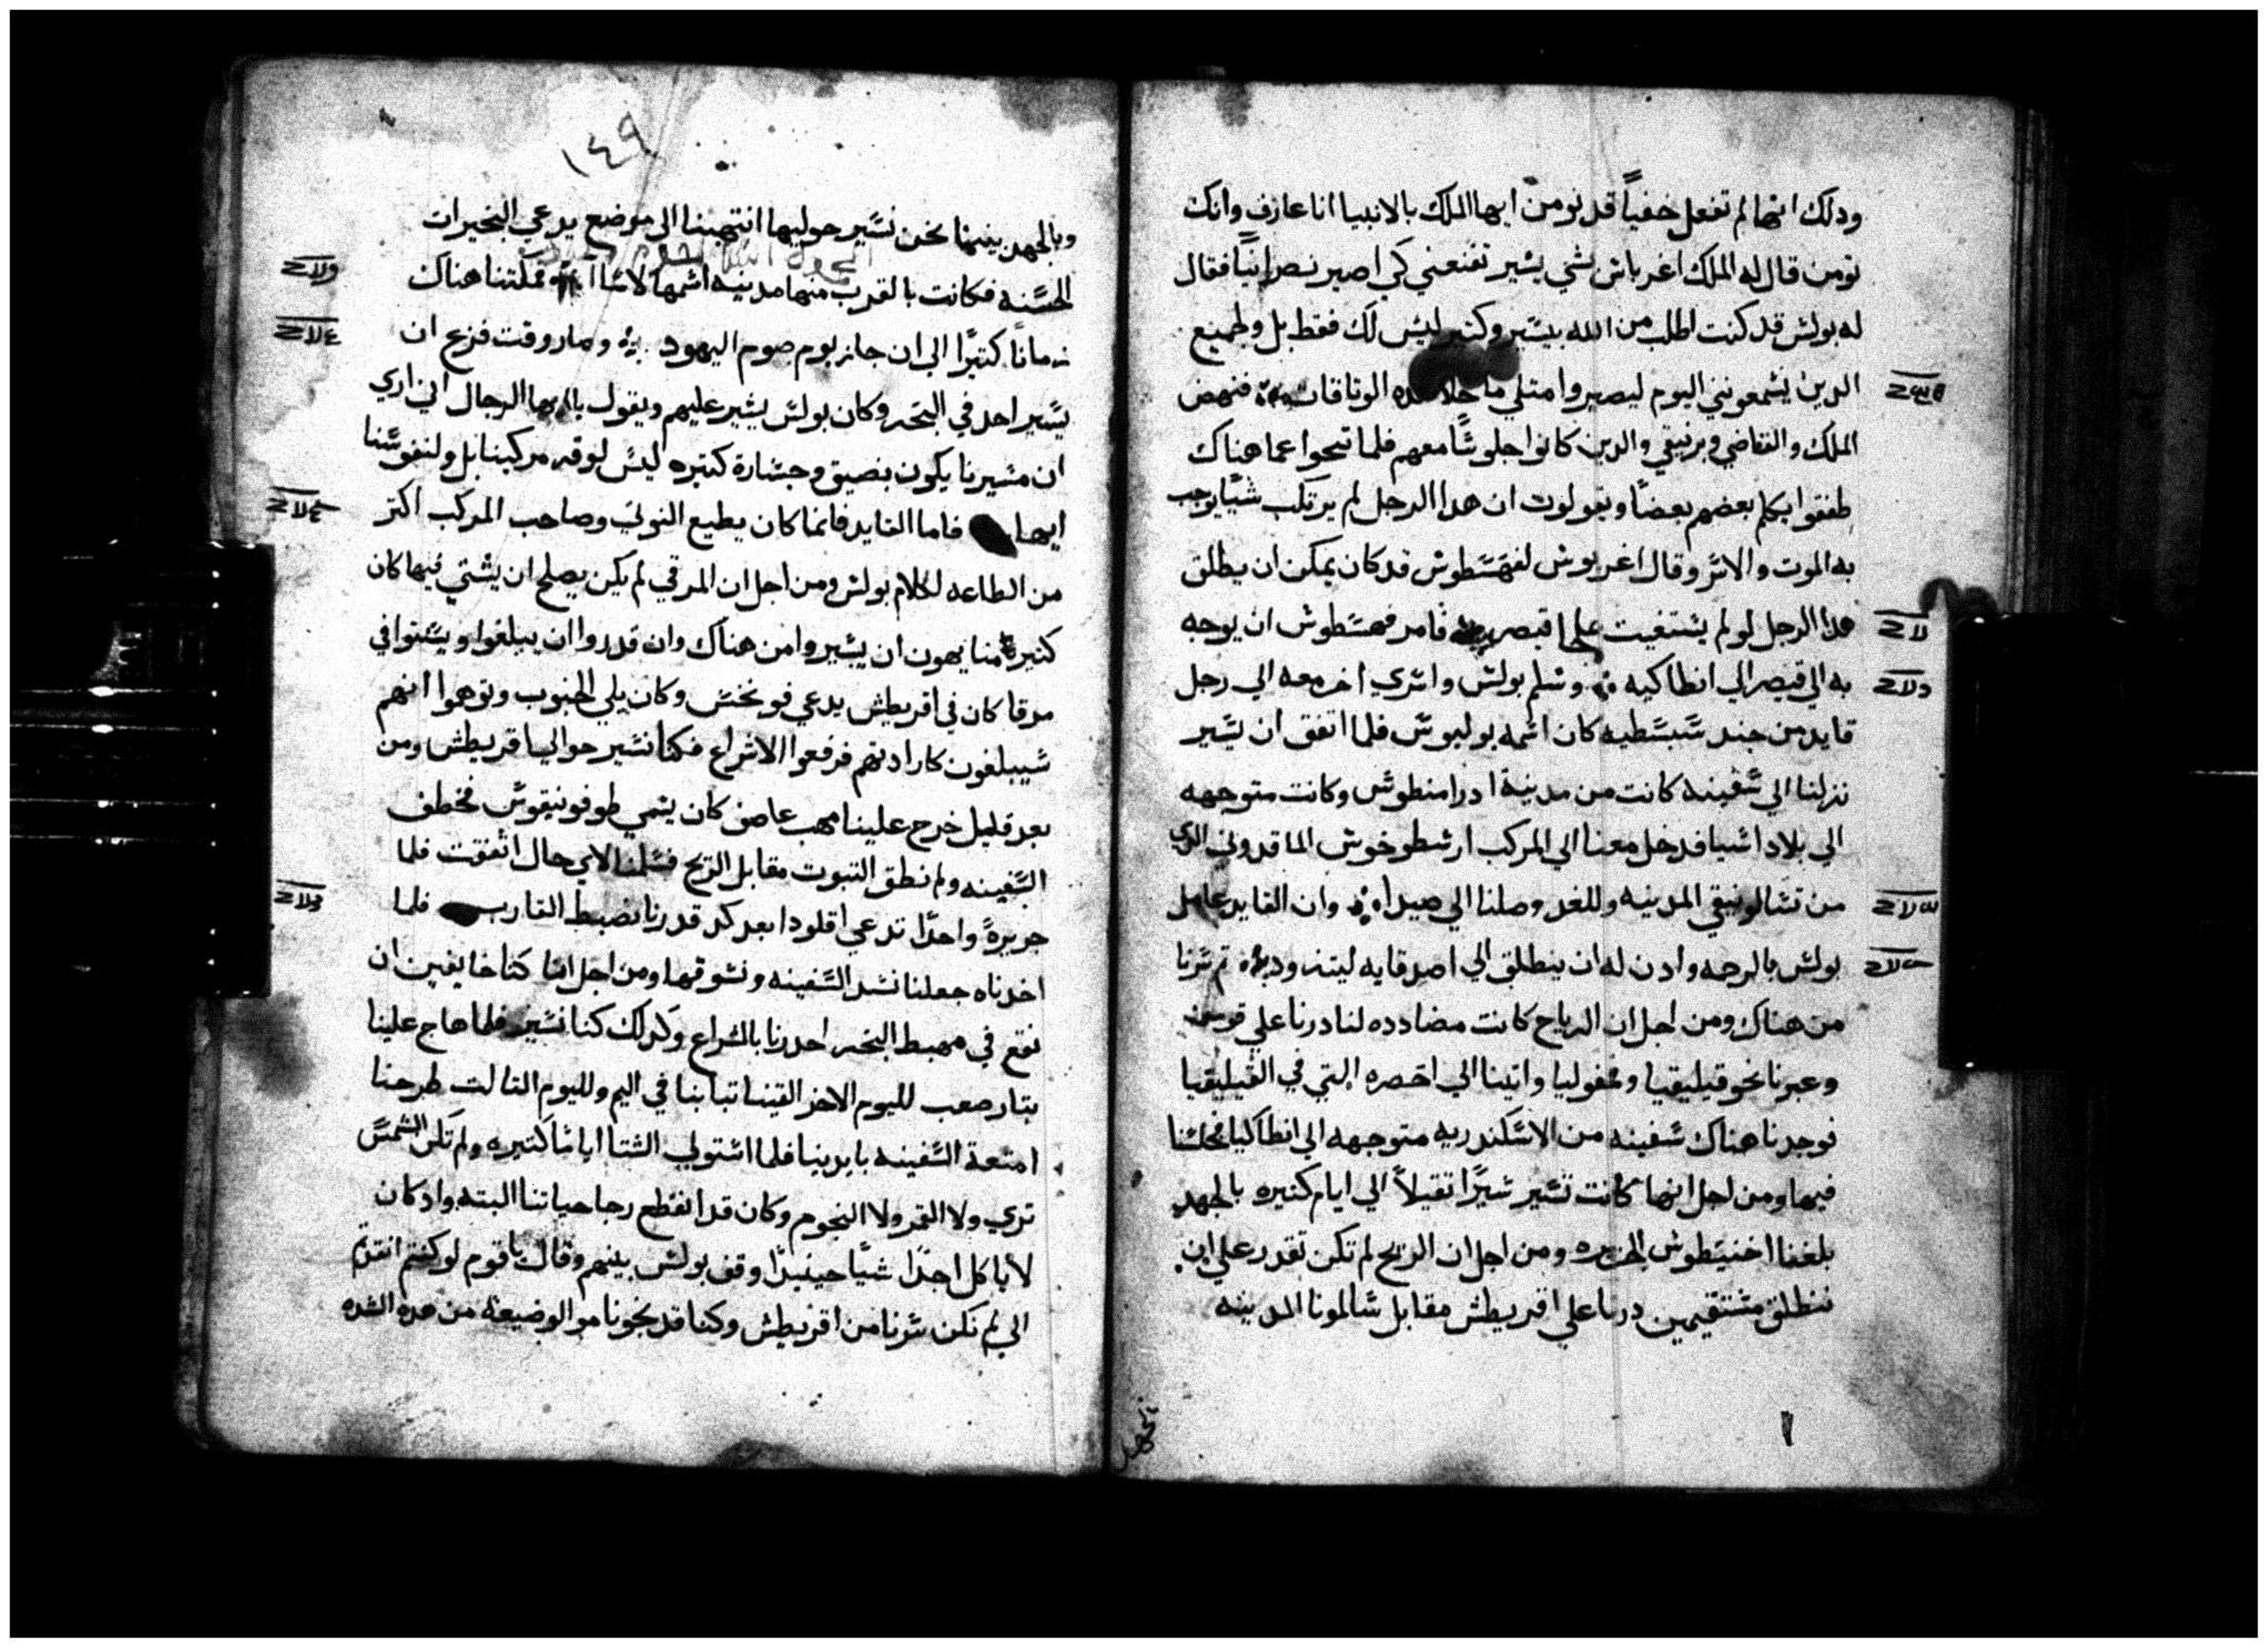 ودلك انها لم تفعل خفياً قد نومن ايها الملك بالانبيا انا عارف وانك
تومن قال له الملك اغرباس بشي يسير تقنعني كي اصير نصرانياً فقال
له بولس قد كنت اطلب من الله بيسير وكتير ليس لك فقط بل ولجميع
الدين يسمعونني اليوم ليصيروا متلي ما خلا هده الوتاقات فنهض
الملك والقاضي وبرنيقي والدين كانوا جلوسًا معهم فلما تنحوا عما هناك
طفقوا يكلم بعضهم بعضًا ويقولوت ان هدا الرجل لم يرتكب شيًا يوجب
به الموت والاسر وقال اغريوس لفهسطوس قد كان يمكن ان يطلق
هدا الرجل لو لم يستغيت علي قيصر فامر فهسطوس ان يوجه
به الي قيصر الي انطاكيه وسلم بولس واسري اخر معه الي رجل
قايد من جند سبسطيه كان اسمه يوليوس فلما اتفق ان يسير
نزلنا الي سفينه كانت من مدينة ادرامنطوس وكانت متوجهه
الي بلاد اسيا فدخل معنا الي المركب ارسطرخوس الماقدوني الدي
من تسالونيقي المدينه وللغد وصلنا الي صيدا وان القايد عامل
بولس بالرحمه وادن له ان ينطلق الي اصدقايه ليتزود تم سرنا
من هناك ومن اجل ان الرياح كانت مضادده لنا درنا علي قوبرس
وعبرنا نحو قيليقيا ومفوليا واتينا الي اخصره التي في القيليقيا
فوجدنا هناك سفينه من الاسكندريه متوجهه الي انطاكيا فحلسنا
فيها ومن اجل انها كانت تسير سيرًا تقيلاً الي ايام كتيره بالجهد
بلغنا اخنيسطوس الجزيره ومن اجل ان الريح لم تكن تقدر علي ان
ننطلق مستقيمين درنا علي اقريطش مقابل سالمونا المدينه
١٤٩
وبالجهد بينما نحن نسير حوليها انتهينا الي موضع يدعي البخيرات
الحسنه فكانت بالقرب منها مدينه اسمها لاسا فمكتنا هناك
زمانًا كتيرًا الي ان جاز يوم صوم اليهود وصار وقت فزيع ان
يسير احد في البحر وكان بولس يشير عليهم ويقول يا ايها الرجال اني اري
ان مسيرنا يكون بضيق وخسارة كتيره ليس لوقر مركبنا بل ولنفوسنا
ايها فاما القايد فانما كان يطيع النوتي وصاحب المركب اكتر
من الطاعه لكلام بولس ومن اجل ان المرقي لم يكن يصلح ان يشتي فيها كان
كتير منا يهون ان يسيروا من هناك وان قدروا ان يبلغوا ويشتوا في
مرقا كان في اقريطش يدعي فونخس وكان يلي الجنوب وتوهموا انهم
سيبلغون كارادتهم فرفعوا الاشراع فكنا نسير حوالي اقريطش ومن
بعد قليل خرج علينا مهب عاصف كان يسمي طوفونيقوس فخطف
السفينه ولم نطق التبوت مقابل الريح فسلمنا لاي حال اتفقت فلما
جزيرةً واحدًا تدعي اقلودا بعد كد قدرنا نضبط القارب فلما
اخدناه جعلنا نشد السفينه ونسوقها ومن اجل انا كنا خايفين ان
نقع في مهبط البحر احدرنا بالشراع وكدلك كنا نسير فلما هاج علينا
بتار صعب لليوم الاخر القينا تيابنا في اليم ولليوم التالت طرحنا
امتعة السفينه بايدينا فلما استولي الشتا اياما كتيره ولم تكن الشمس
تري ولا القمر ولا النجوم وكان قد انقطع رجا حياتنا البته واد كان
لا ياكل احدًا شيًا حينيدًا وقف بولس بينهم وقال يا قوم لو كنتم انقدتم
الي لم نكن سرنا من اقريطش وكنا قد نجونا من الوضيعه من هده الشده